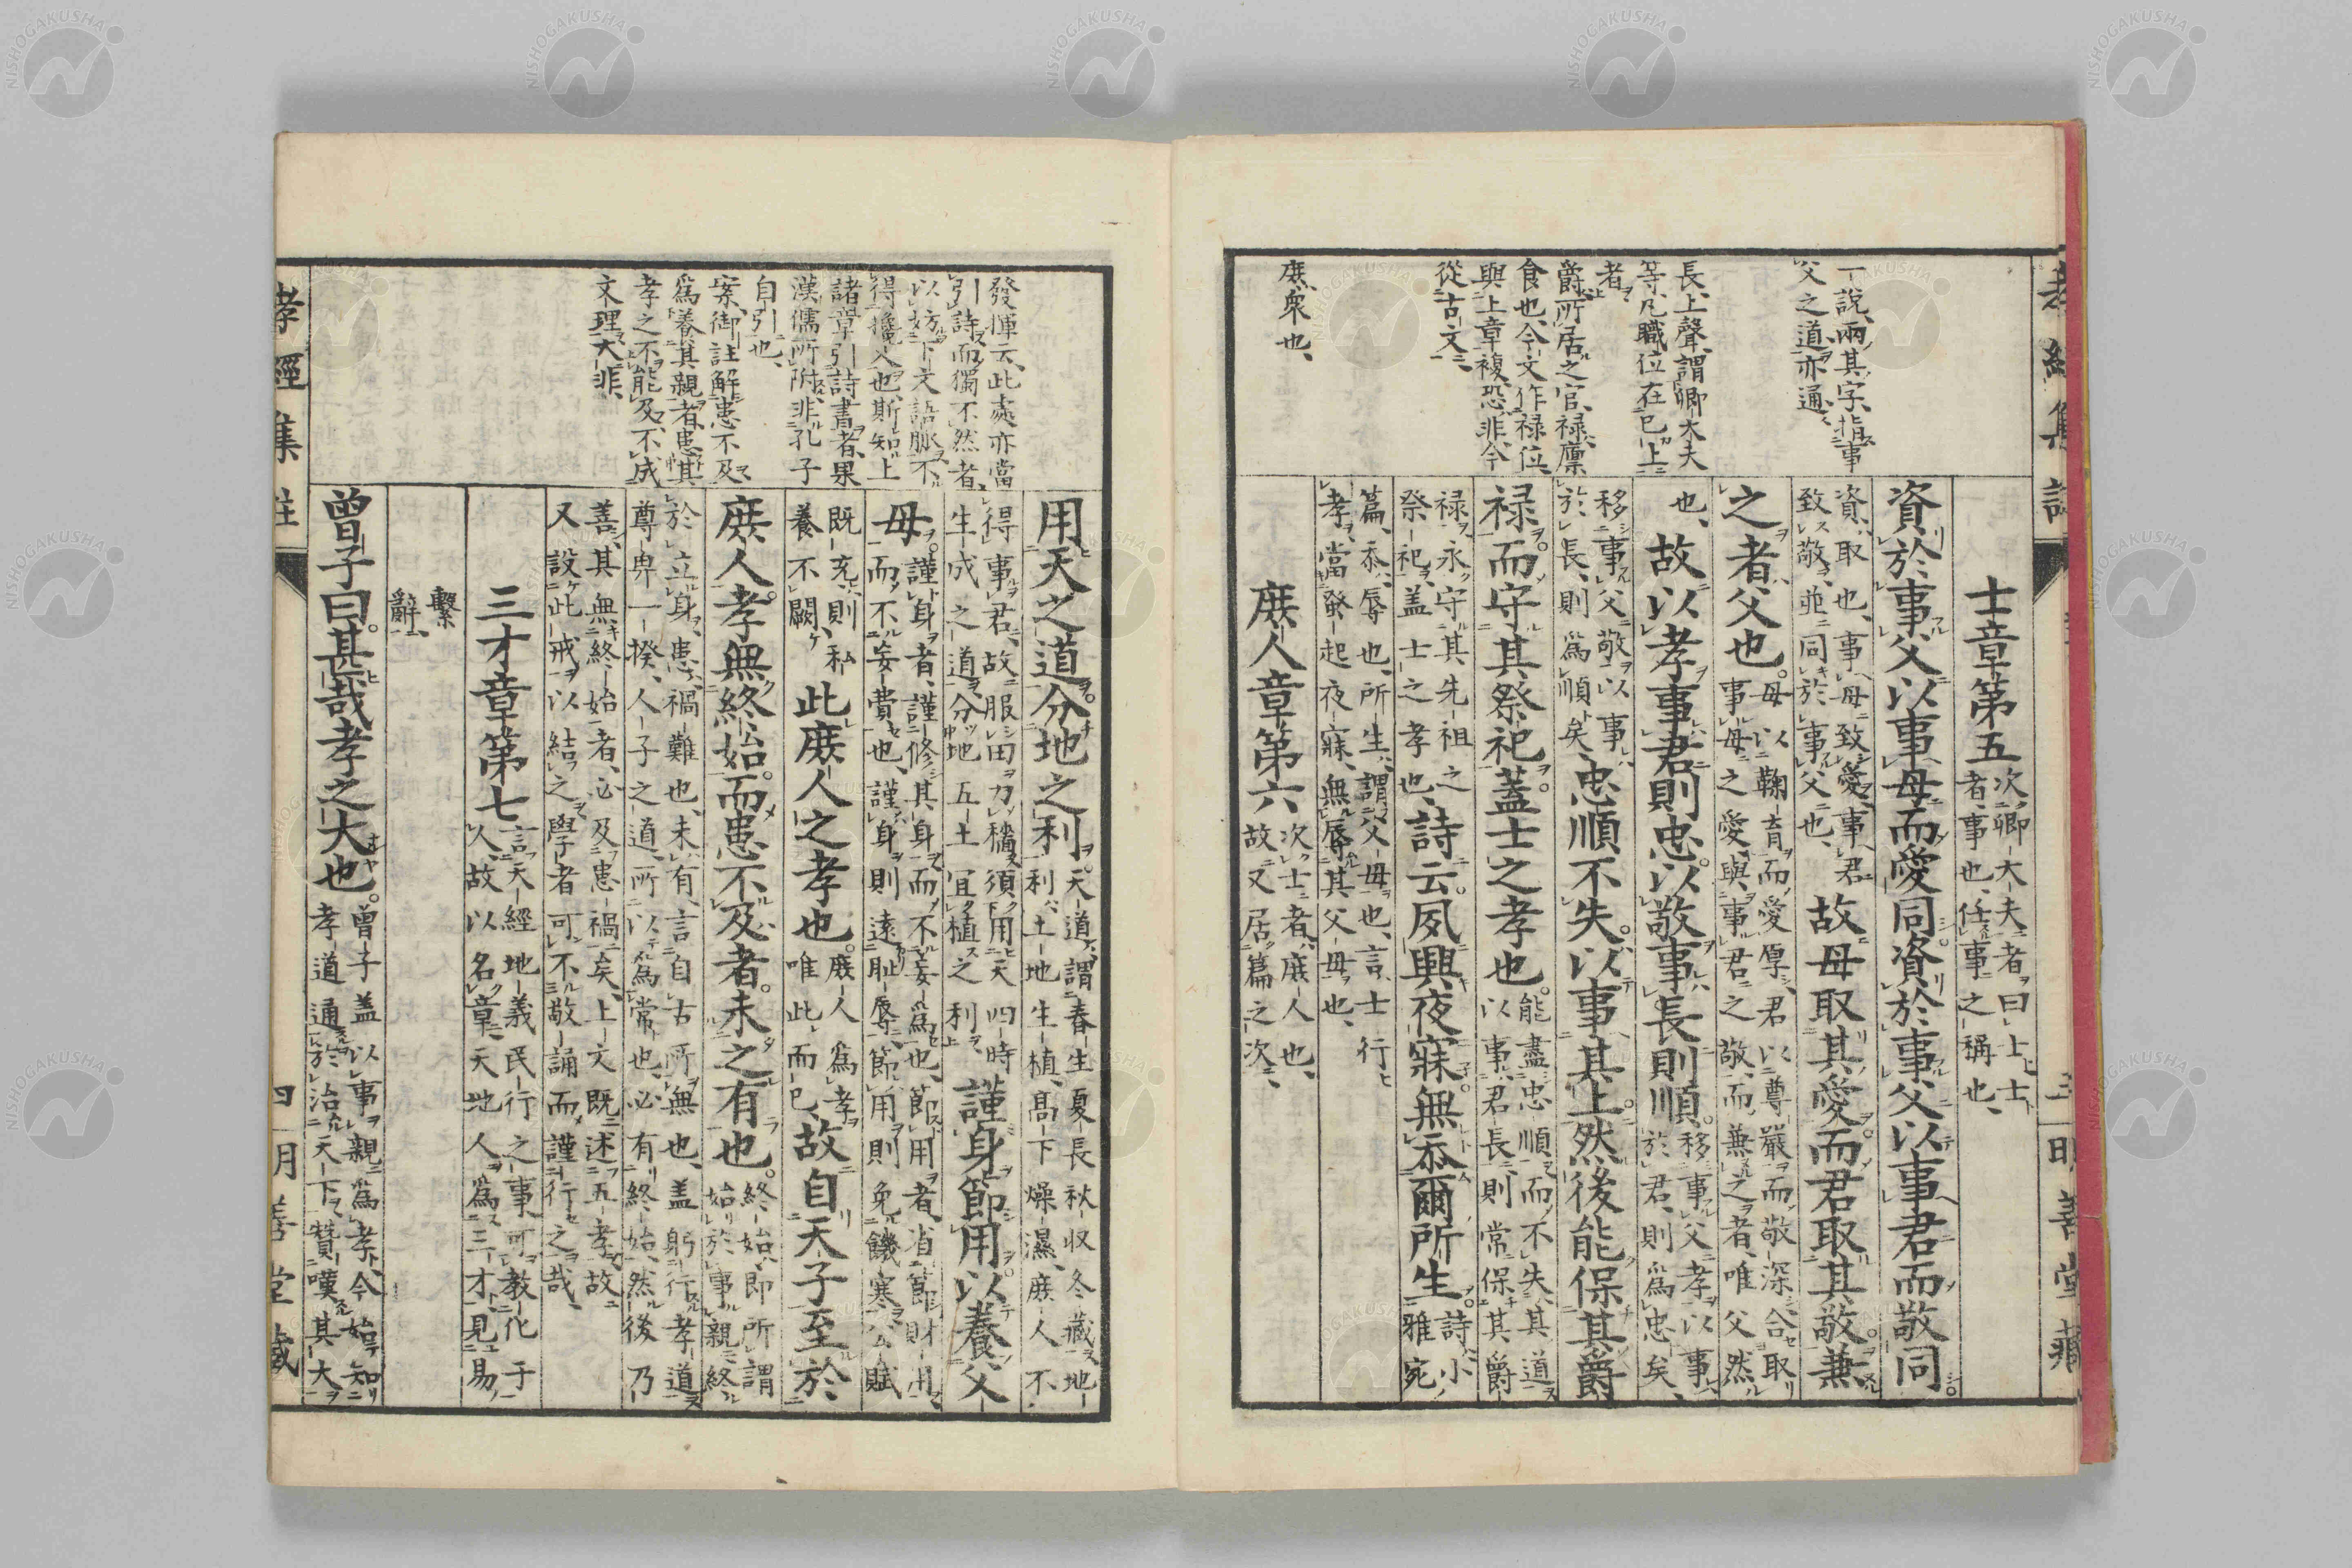 士章第五 次卿大夫者曰上士
者事也任事之稱也
資於事父以事母而愛同資於事父以事君而敬同
資取也事母致愛事君
致敬並同於事父也 故母取其愛而君取其敬兼
之者父也 母以鞠育而愛厚君以尊嚴而敬深合取
事母之愛與事君之敬而兼之者唯父然
也 故以孝事君則忠以敬事長則順 移事父孝以事
於君則爲忠矣
移事父敬以事
於長則爲順矣 忠順不失以事其上然後能保其爵
祿而守其祭祀蓋士之孝也 能盡忠順而不失其道
以事君長則常保其爵
祿永守其先祖之
祭祀蓋士之孝也 詩云夙興夜寐無忝爾所生 詩小
雅宛
篇忝辱也所生謂父母也言士行
孝當發起夜寐無辱其父母也
庶人章第六 次士者庶人也
故又居篇之次
一說兩其字指事
父之道亦通
長上聲謂卿大夫
等凡職位在己上
者
爵所居之官祿廩
食也今文作祿位
與上章複恐非今
從古文
庶衆也
用天之道分地之利 天道謂春生夏長秋收冬藏地
利土地生植高下燥濕庶人不
得事君故服田力穡須用天四時
生成之道分地五土宜植之利 謹身節用以養父
母 謹身者謹修其身而不妄爲也節用者省節財用
而不妄費也謹身則遠耻辱節用則免饑寒公賦
既充則私
養不闕 此庶人之孝也 庶人爲孝
唯此而已 故自天子至於
庶人孝無終始而患不及者未之有也 終始即所謂
始於事親終
於立身患禍難也未有言自古所無也蓋躬行孝道
尊卑一揆人子之道所以爲常也必有終始然後乃
善其無終始者必及患禍矣上文既述五孝故
又設此戒以結之學者可不敬誦而謹行之哉
三才章第七 言天經地義民行之事可教化于
人故以名章天地人爲三才見易
繫
辭
曾子曰甚哉孝之大也 曾子蓋以事親爲孝今始知
孝道通於治天下贊嘆其大
發揮云此處亦當
引詩而獨不然者
以妨下文語脉不
得攙入也斯知上
諸章引詩書者果
漢儒所附非孔子
自引也
案御註解患不及
爲養其親者患其
孝之不能及不成
文理大非
孝經集註
四明善堂藏
NISHOGAKUSHA